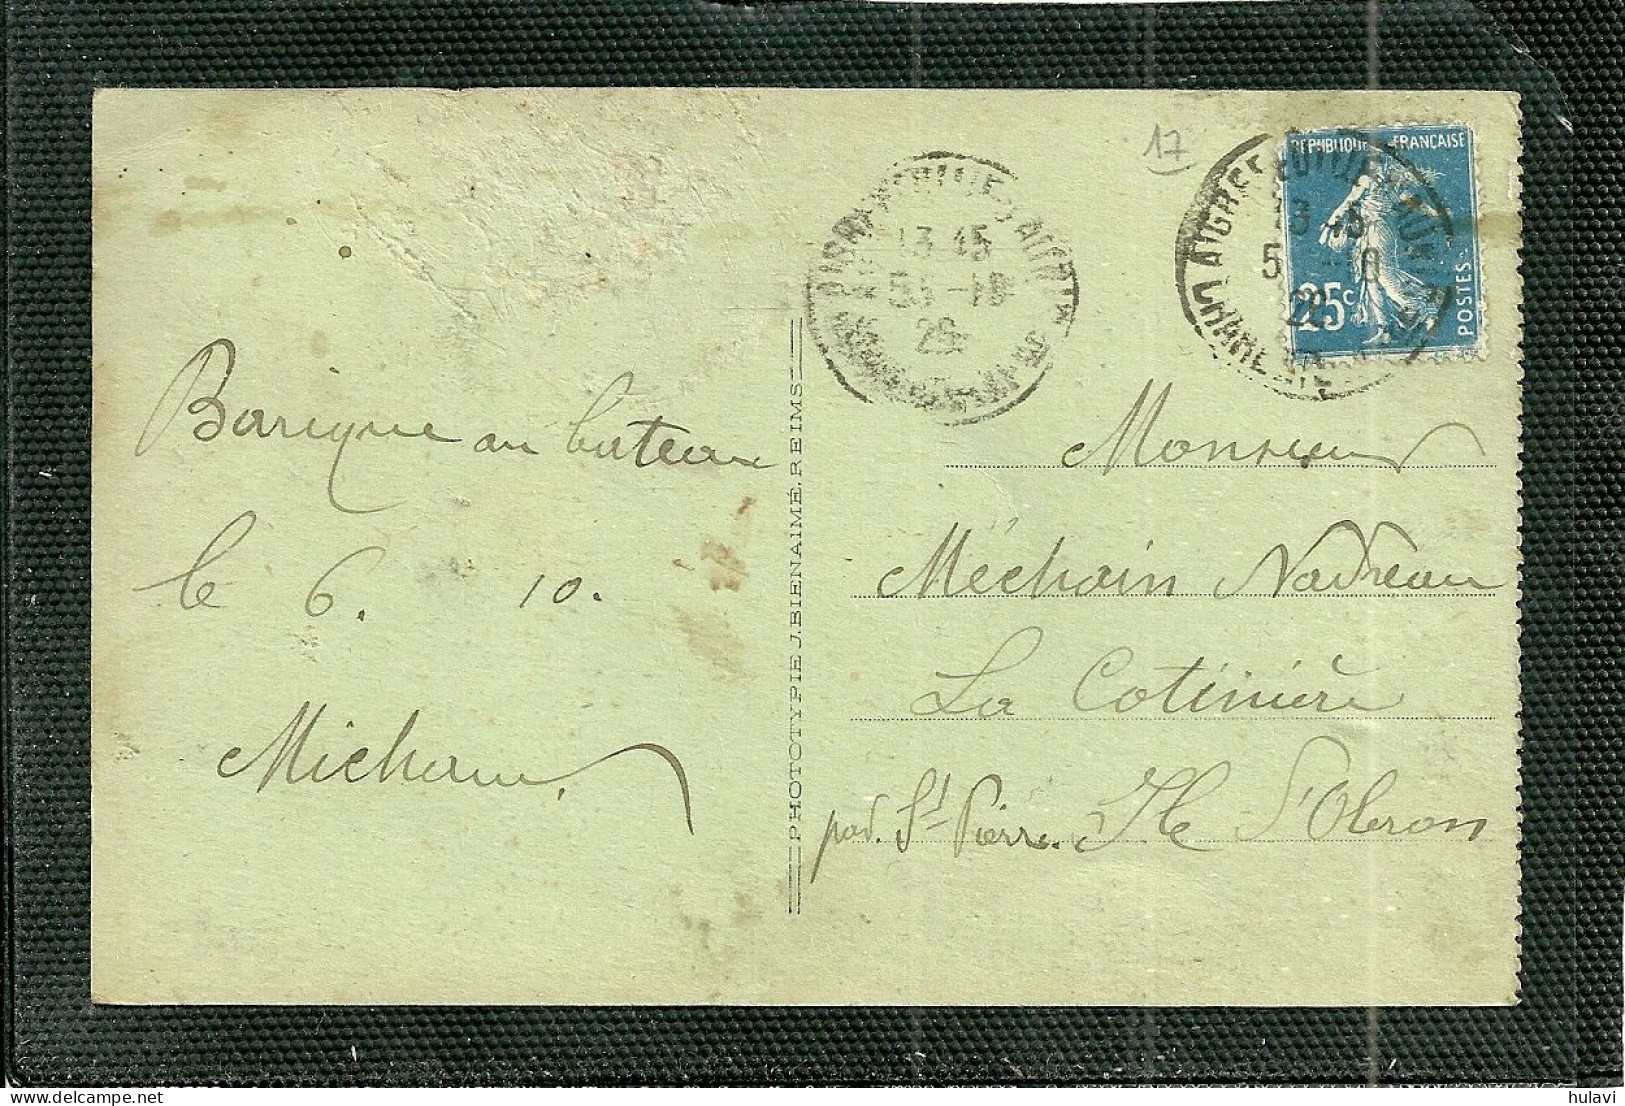 17
REPUBLIQUE FRANÇAISE
25c
POSTES
13 45
5 -10
13 45
5 -10
Barique au bateau
le 6. 10.
PHOTOTYPIE J. BIENAIMÉ. REIMS
Monsieur
Méchain Nadreau
La Cotinière
par St Pierre. Ile d'Oleron
hulavi